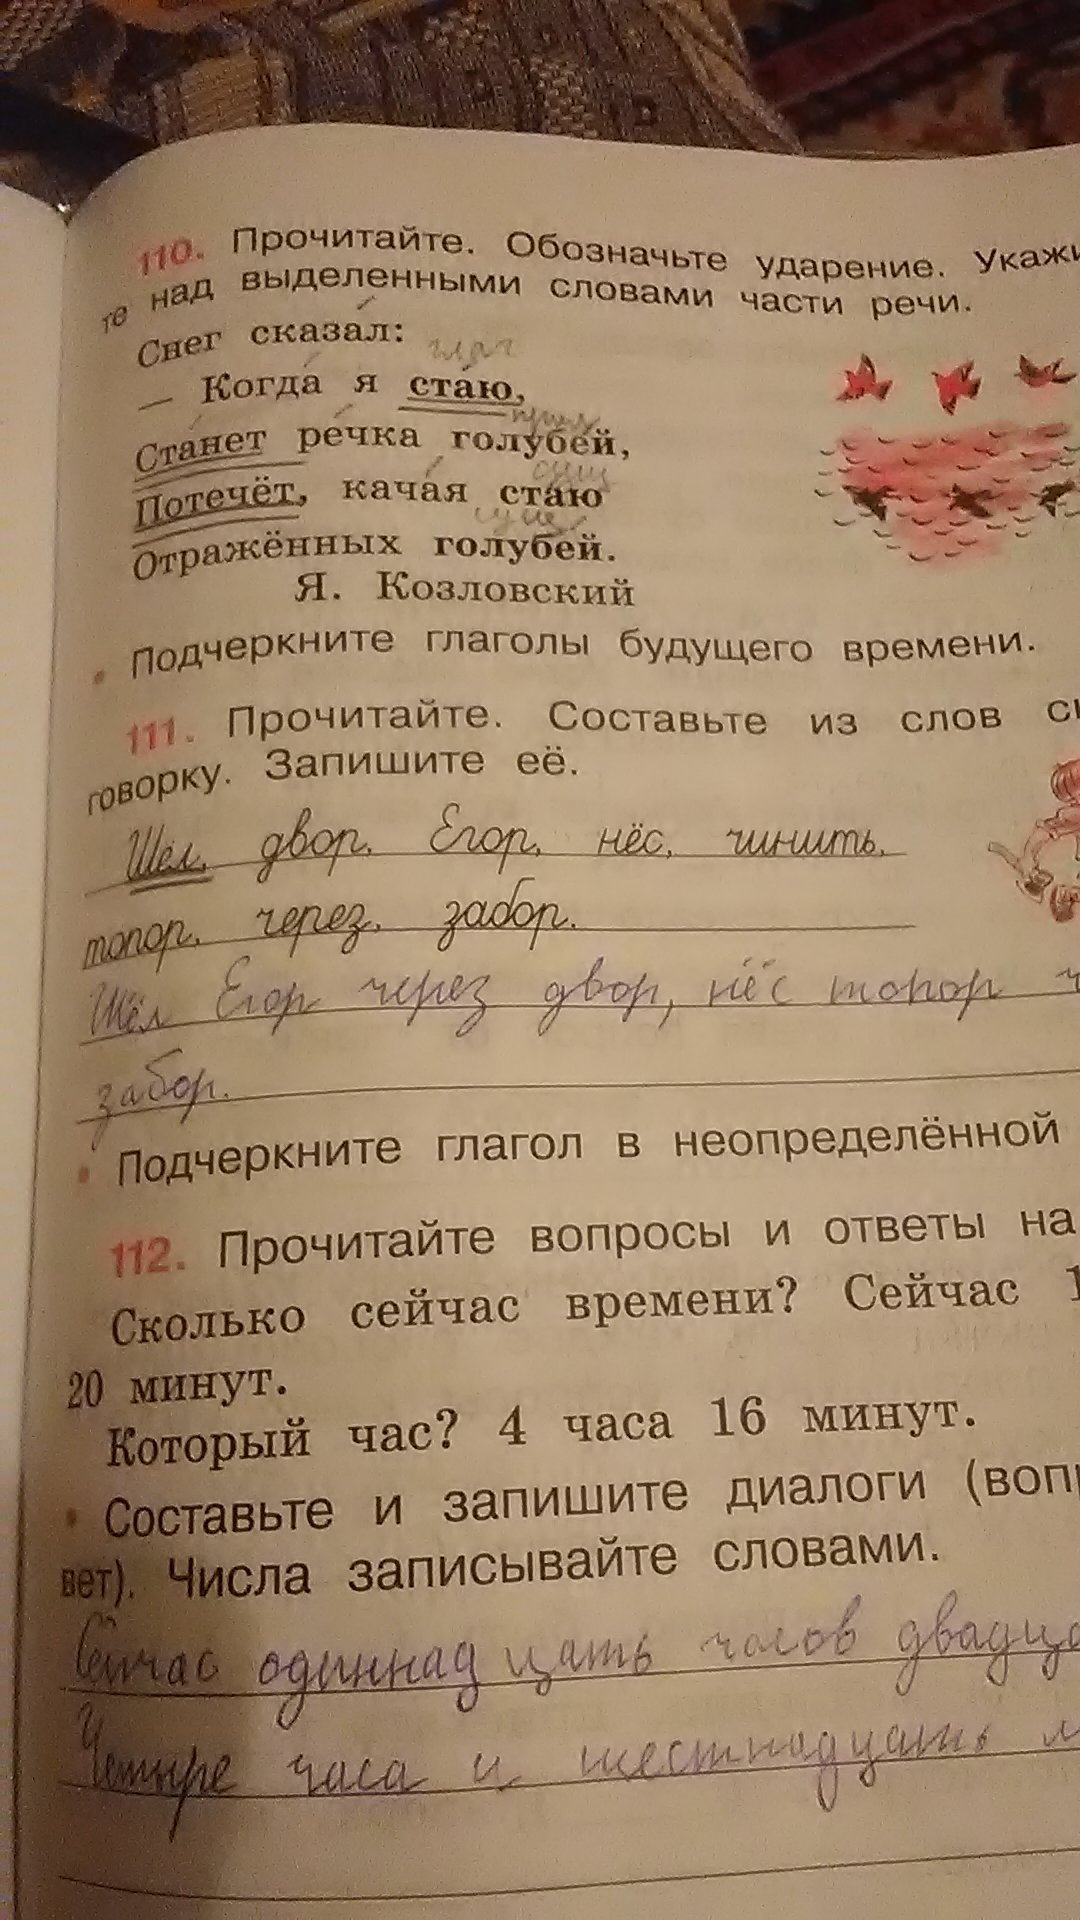 110. Прочитайте. Обозначьте ударение. Укажи
те над выделенными словами части речи.
Снег сказал:
глаг
— Когда я стаю,
Станет речка голубей,
сущ
Потечёт, качая стаю
Отражённых голубей.
Я. Козловский
• Подчеркните глаголы будущего времени.
111. Прочитайте. Составьте из слов ск
говорку. Запишите её.
Шел, двор, Егор, нёс, чинить,
топор, через, забор.
Шёл Егор через двор, нёс топор ч
забор.
• Подчеркните глагол в неопределённой
112. Прочитайте вопросы и ответы на
Сколько сейчас времени? Сейчас 1
20 минут.
Который час? 4 часа 16 минут.
• Составьте и запишите диалоги (вопр
вет). Числа записывайте словами.
Сейчас одиннадцать часов двадца
Четыре часа и шестнадцать м